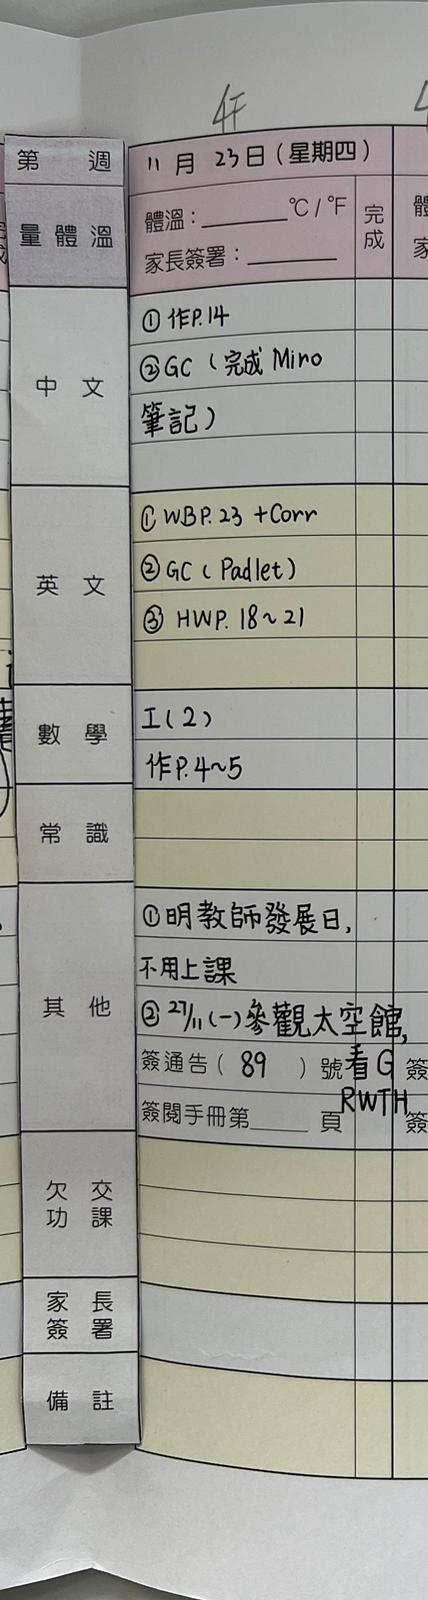 4F
第 週
11月23日(星期四)
量體溫
體溫：______℃/℉
完成
家長簽署：______
中文
①作P.14
②GC(完成 Miro
筆記)
英文
①WBP.23 +Corr
②GC(Padlet)
③ HWP. 18~21
數學
I(2)
作P.4~5
常識
其他
①明教師發展日,
不用上課
②27/11(一)參觀太空館,
看G
RWTH
簽通告( 89 )號
簽閱手冊第____頁
簽
簽
欠交
功課
家長
簽署
備註